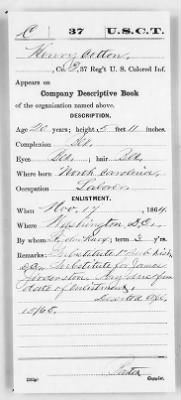 C 37 U.S.C.T.
Henry Cotton
, Co. C, 37 Reg't U. S. Colored Inf.
Appears on
Company Descriptive Book
of the organization named above.
DESCRIPTION.
Age 20 years; height 5 feet 11 inches.
Complexion Blk.
Eyes Blk., hair Blk.
Where born North Carolina
Occupation Laborer
ENLISTMENT.
When Nov. 17, 1864.
Where Washington, D.C.
By whom term 3 y'rs.
Remarks: Substitute 1st Sub Dist
D.C. Substitute for James
date of enlistment.
Deserted
1865.
Copyist.